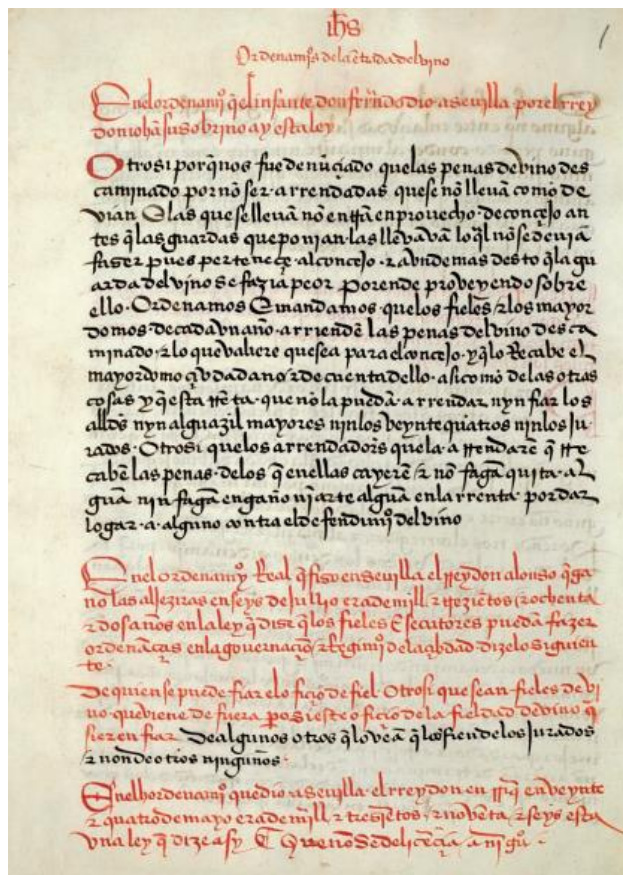 ihs
1
Ordenamjos dela entrada del vino
Enel ordenamjo q el infante don ferrnando dio a sevilla por el rrey
don iohan su sobrino ay esta ley
Otrosi porq nos fue denuçiado que las penas de vino des
caminado por no ser arrendadas que se no llevan como de
vian E las que se llevan no entran en provecho de conçejo an
tes q las guardas que ponian las llevavan lo ql no se devia
faser pues perteneçe al conçejo. z avn demas desto q la gu
arda del vino se fazia peor Porende proveyendo sobre
ello. Ordenamos E mandamos que los fieles z los mayor
domos de cada vn año arrienden las penas del vino desca
minado z lo que valiere que sea para el conçejo. y q lo Recabe el
mayordomo çibdadano z de cuenta dello. asi como delas otras
cosas y q esta rreta. que no la puedan arrendar nyn fiar los
allds nyn alguazil mayores nin los veynte quatros nin los ju
rados. Otrosi que los arrendadors que la arrendare q rre
caben las penas. delos q en ellas cayere z no fagan quita al
guna nin fagan engaño nj arte alguna en la rrenta por dar
logar a alguno contra el defendimjo del vino
Enel ordenamjo Real q fiso en sevilla el rrey don alonso q ga
no las aljeziras en seys de jullio era de mill z trezietos z ochenta
z dos años en la ley q dise q los fieles Esecutores puedan fazer
ordenaças en la governaçio z Regimjo dela çibdad dize lo siguien
te.
De quien se puede fiar el ofiçio de fiel. Otrosi que sean fieles de vi
no que viene de fuera por si este ofiçio de la fieldad de vino q
sieren fiar De algunos otros q lo vean q lo fien de los jurados
z non de otros ningunos.
Enel hordenamjo que dio a sevilla el rrey don enrriq en veynte
z quatro de mayo era de mill z tresientos z noventa z seys esta
vna ley q dize asy Que no se de liçençia a njgu.